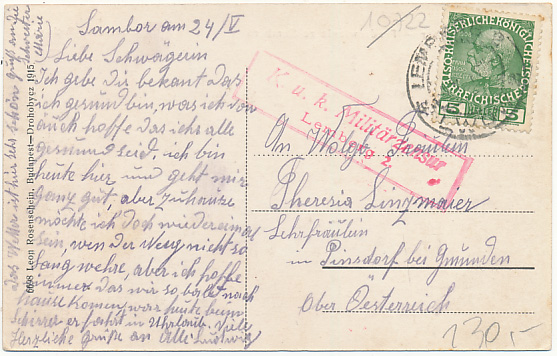 Sambor am 24/V
Liebe Schwägerin
Ich gebe Dir bekant das
ich gesund bin, was ich von
euch hoffe das ihr alle
gesund seid, ich bin
heute hier und geht mir
ganz gut, aber zuhause
möchte ich doch wieder einmal
sein, wen der Weg nicht so
lang wehre, aber ich hoffe
immer das wir so balt nach
hause komen, war heute beim
er fahrt in Uhrlaub. Viele
Herzliche Grüße an Alle Ludwig
das Wetter ist hir sehr schön
grüß an die
Schwester
Marie
6698 Leon Rosenschein, Budapest-Drohobycz 1915
10722
K. u. k. Militärzensur
Lemberg 2
LEMB
5 5
An Wolgb. Fräulein
Theresia Lingmaier
Lehrfräulein
in Pinsdorf bei Gmunden
Ober Österreich
130,-